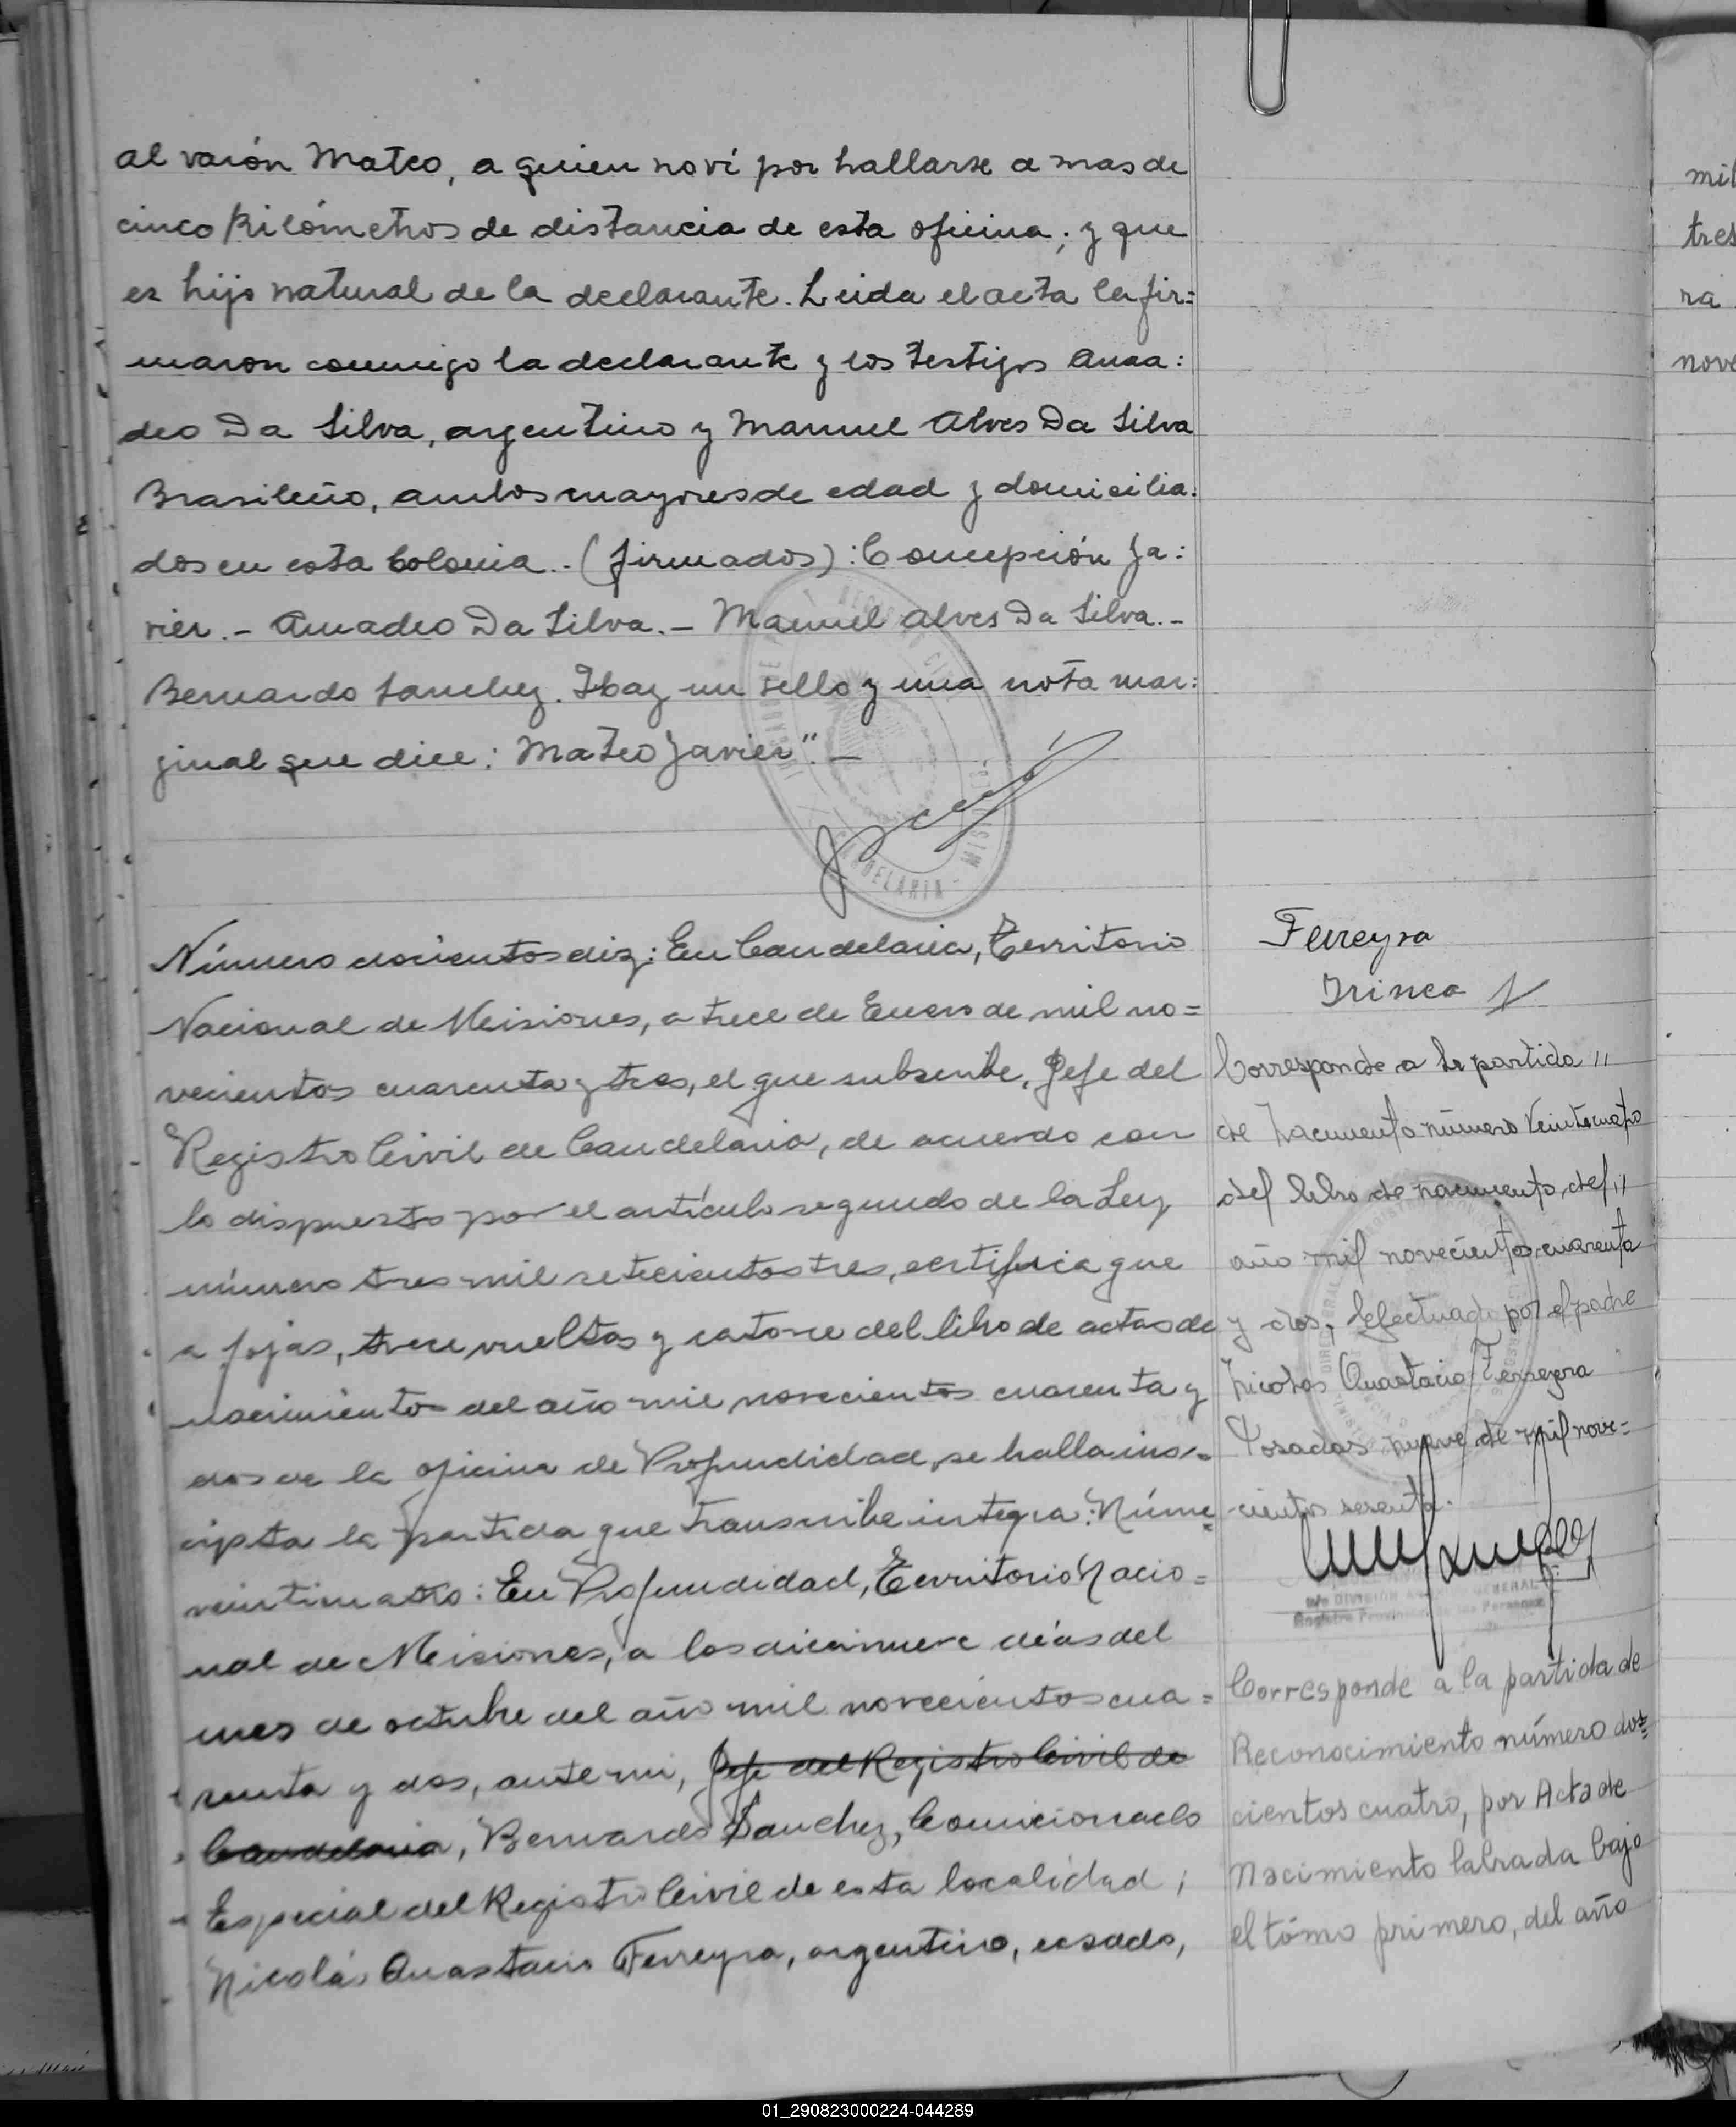 al varón Mateo, a quien no ví por hallarse a mas de
cinco kilómetros de distancia de esta oficina; y que
es hijo natural de la declarante. Leida el acta la fir=
maron conmigo la declarante y los testigos Amaa:
deo Da Silva, argentino y Manuel Alves Da Silva
Brasileño, ambos mayores de edad y domicilia:
dos en esta Colonia.- (firmados): Concepción Ja:
vier.- Amadeo Da Silva.- Manuel Alves Da Silva.-
Bernardo Sanchez. Ihay un sello y una nota mar:
jinal que dice: Mateo Javier".-
Número docientos diz: En Candelaria, Territorio
Nacional de Misiones, a trece de Enero de mil no=
vecientos cuarenta y tres, el que subscribe, Jefe del
Registro Civil de Candelaria, de acuerdo con
lo dispuesto por el artículo segundo de la Ley
número tres mil setecientos tres, certifica que
a fojas, trece vueltas y catorce del libro de actas de
nacimientos del año mil novecientos cuarenta y
dos de la oficina de Profundidad, se halla ins=
cripta la partida que transcribe integra: Núme=
veinticuatro: En Profundidad, Territorio Nacio=
nal de Misiones, a los diecinueve días del
mes de octubre del año mil novecientos cua=
renta y dos, ante mi, Jefe del Registro Civil de
Candelaria, Bernardo Sanchez, Comicionado
Especial del Registro Civil de esta localidad;
Nicolás Anastacio Ferreyra, argentino, casado,
Ferreyra
Irinea
Corresponde a la partida "
de Nacimiento número Veinticuatro
del libro de nacimiento, del "
año mil novecientos cuarenta
y dos, efectuado por el padre
Nicolas Anastacio Ferreyra
Posadas nueve de mil nove=
cientos sesenta.
Registro Provincial de las Personas
Corresponde a la partida de
Reconocimiento número dos=
cientos cuatro, por Acta de
Nacimiento labrada bajo
el tómo primero, del año
mil
tres
ra
nove
REGISTRO CIVIL
CANDELARIA - MISIONES
01_290823000224-044289